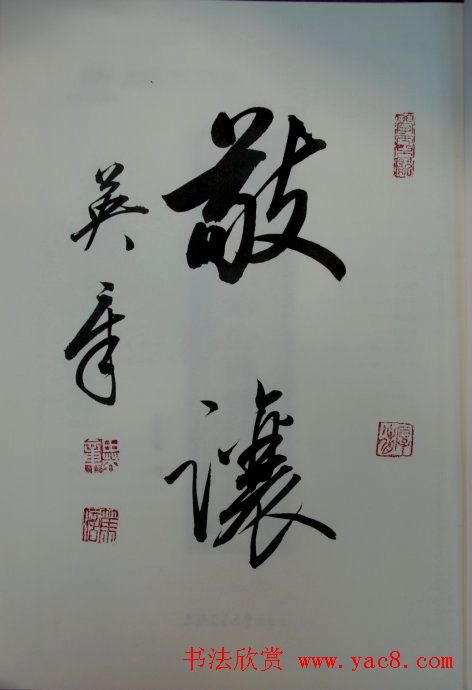 敬讓
英章
书法欣赏 www.yac8.com